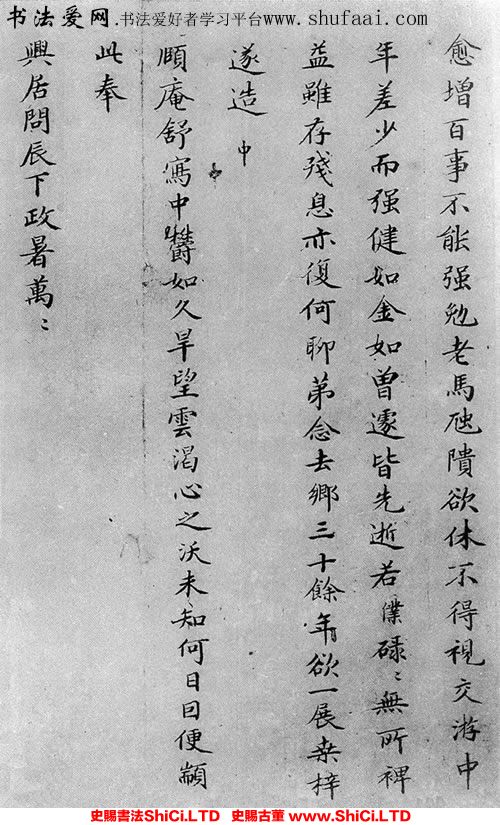 书法爱网 书法爱好者学习平台www.shufaai.com
愈增百事不能强勉老馬虺隤欲休不得視交游中
年差少而强健如金如曾遽皆先逝若僕碌〻無所裨
益雖存殘息亦復何聊第念去鄉三十餘年欲一展桒梓
遂造中
頤庵舒寫中欝如久旱望雲渴心之沃未知何日回便顓
此奉
興居問辰下政暑萬〻
史賜書法ShiCi.LTD 史賜古董 www.ShiCi.LTD